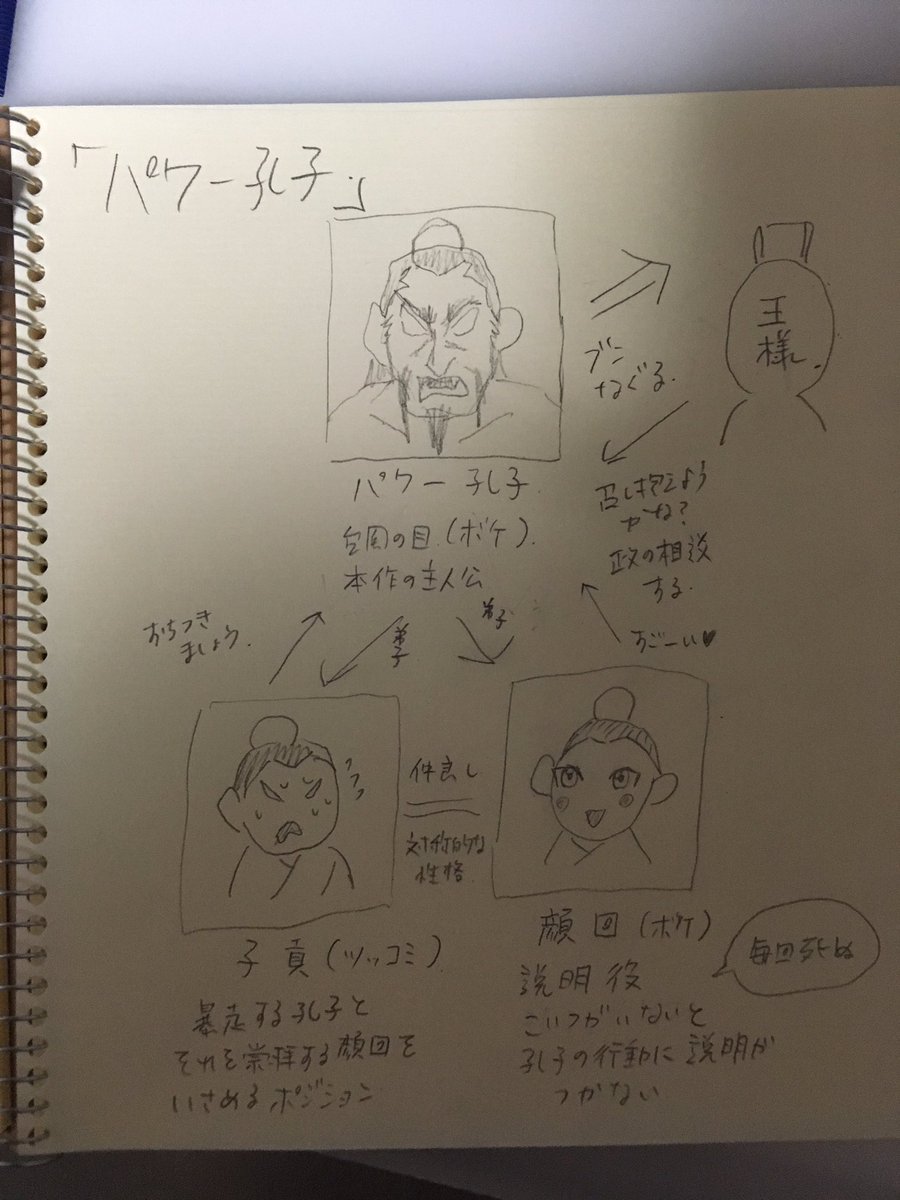 「パワー孔子」
王様
ブン
なぐる
パワー孔子
台風の目(ボケ)
本作の主人公
召し抱えよう
かな?
政の相談
する
おちつき
ましょう
弟子
弟子
すごーい♥
仲良し
対称的な
性格
子貢(ツッコミ)
暴走する孔子と
それを崇拝する顔回を
いさめるポジション
顔回(ボケ)
説明役
こいつがいないと
孔子の行動に説明が
つかない
毎回死ぬ